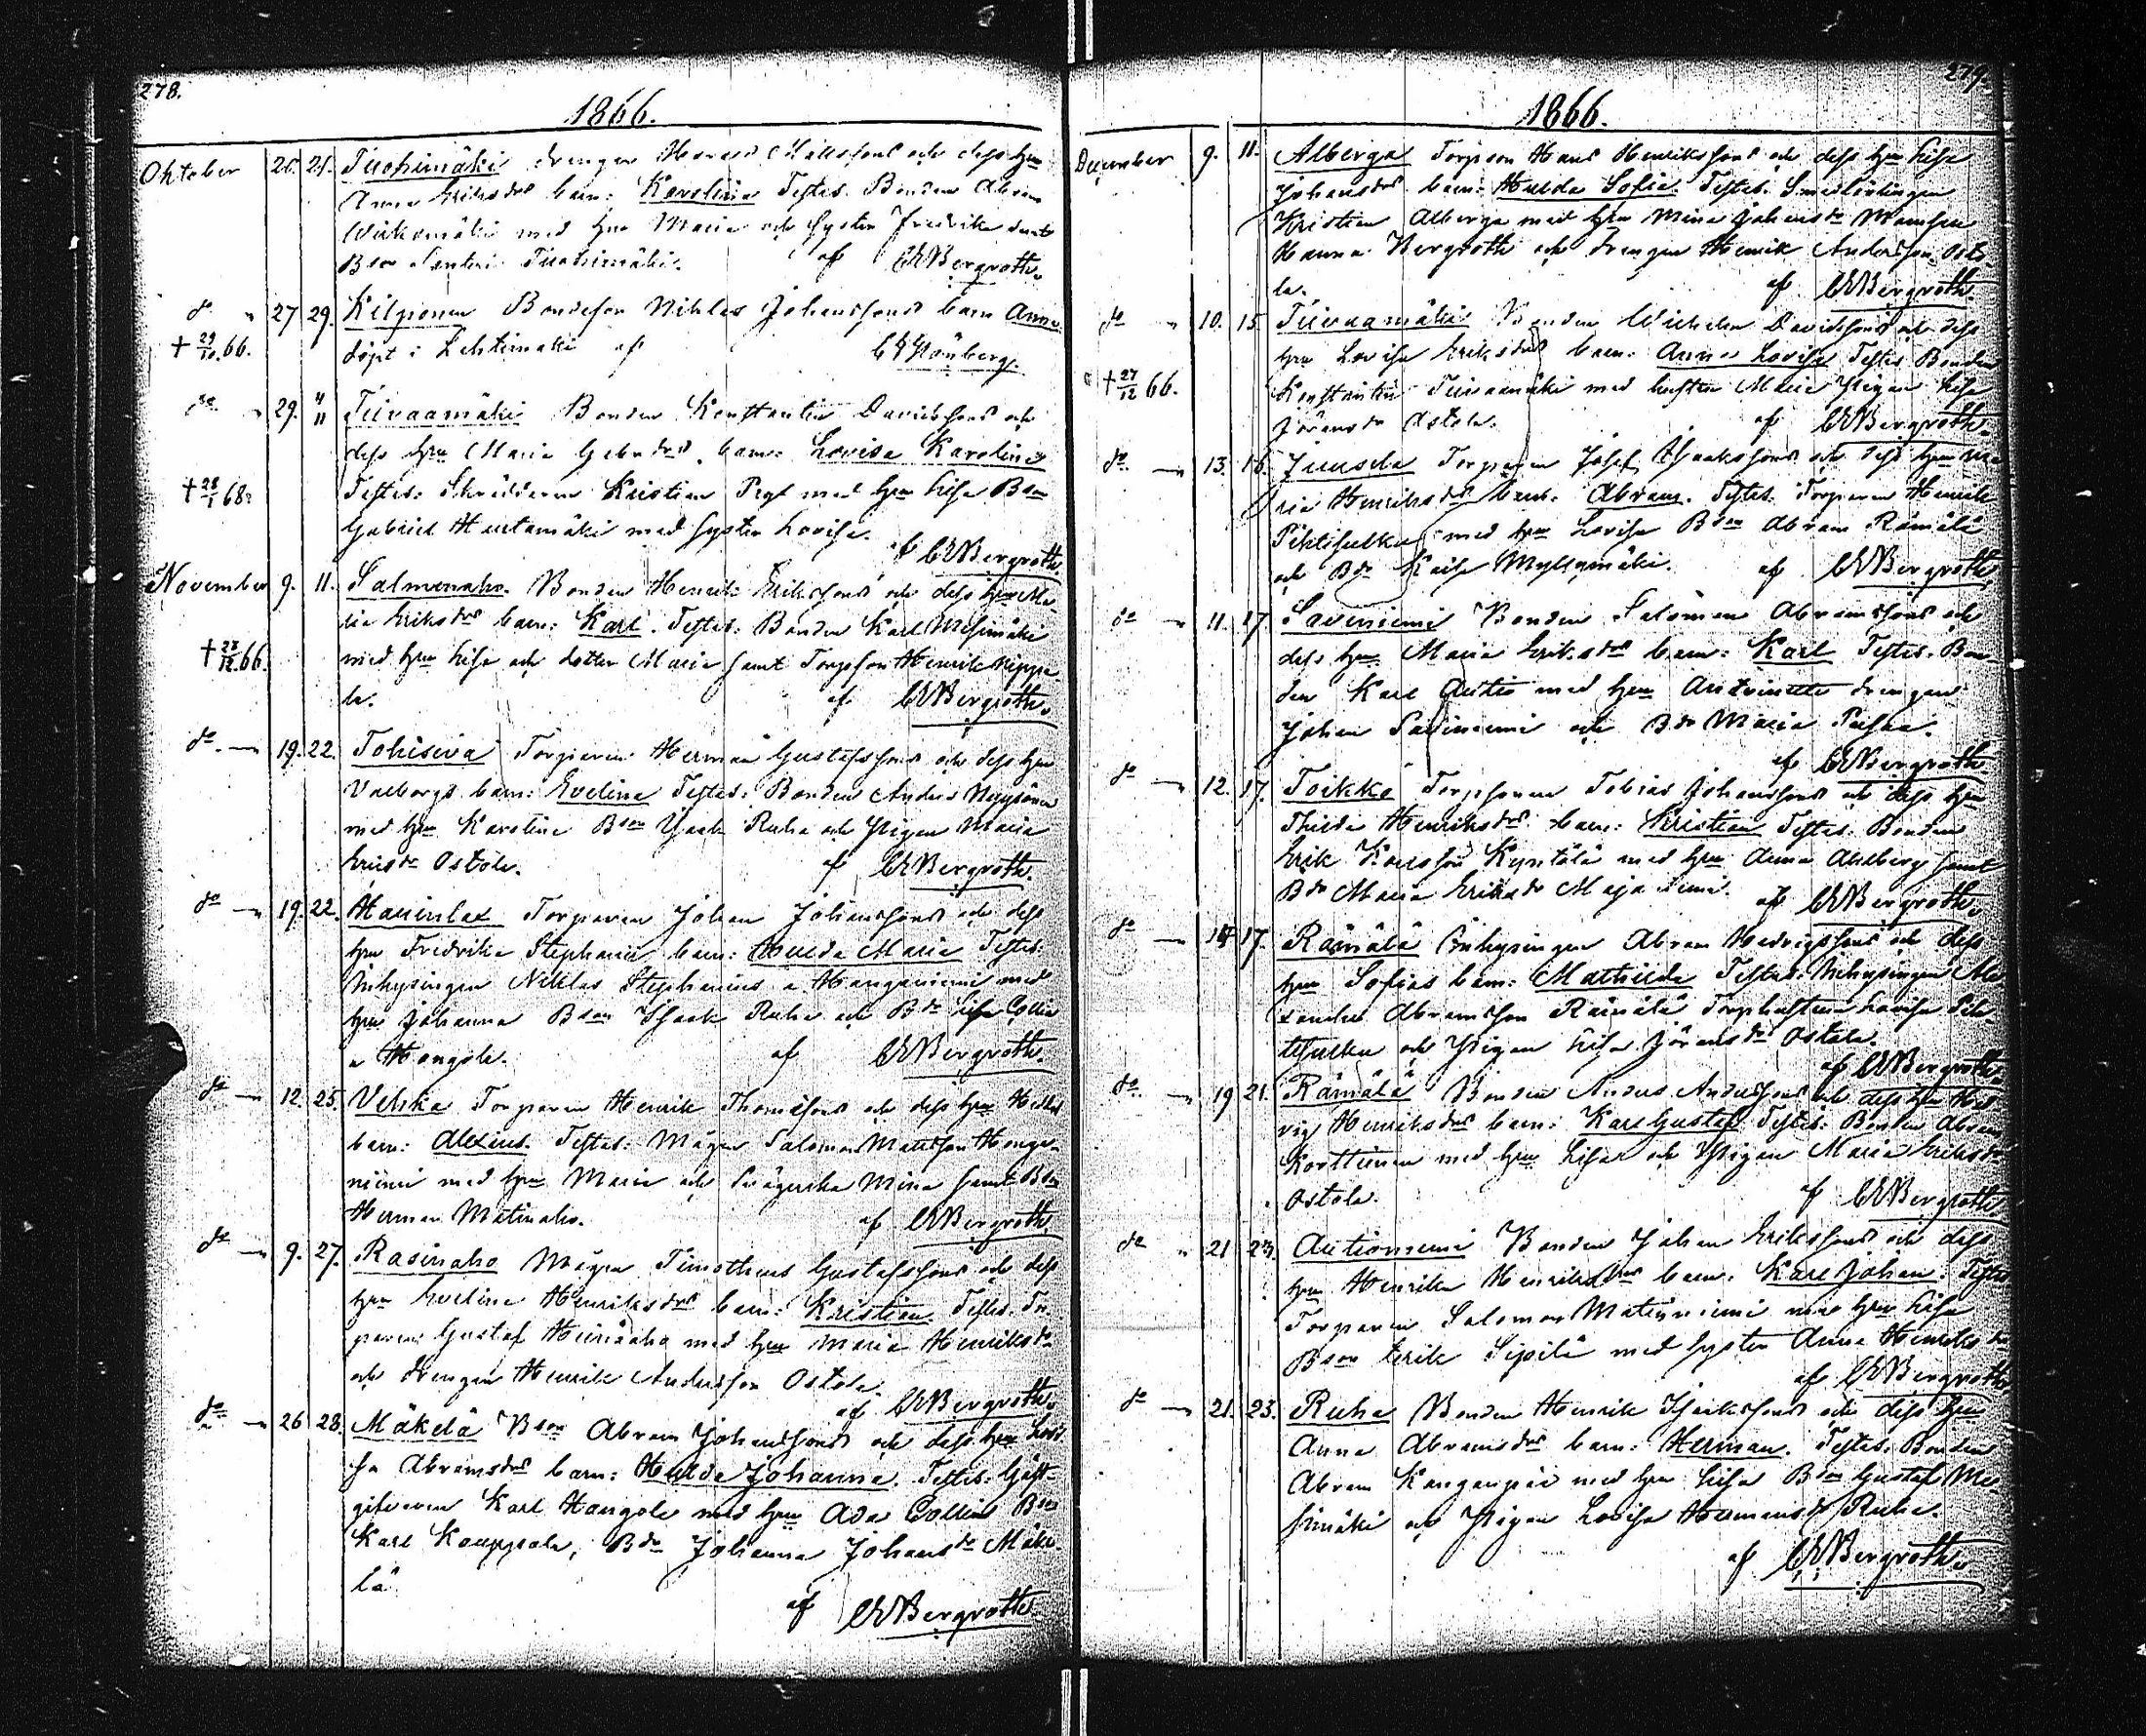 278.
1866.
Oktober 25. 28. Tuohimäki drengen Mattsons och dess hu
Anna Eriksdrs barn: Karolina Testes. Bonden Abram
med hu Maria och syster Fredrika samt
Bson Tuohimäki. af CEBergroth.
do " 27 29. Kilponen Bondeson Niklas Johanssons barn Anna
† 29/10.66. döpt i Lehtimäki af
do " 29. 4/11 Tiivaamäki Bonden Konstantin Davidssons och
dess hru Maria Gabrdrs barn: Lovisa Karolina
† 28/1 68. Testes: Skräddaren Kristian med hru Lisa Bson
Gabriel Hautamäki med syster Lovisa.
af CEBergroth.
November 9. 11. Salmenaho. Bonden Henrik Erikssons och dess hru Ma-
ria Eriksdrs barn: Karl. Testes: Bonden Karl Mesimäki
† 28/12.66. med hru Lisa och dotter Maria samt Torpson Henrik
la. af CEBergroth.
do — 19. 22. Tohisiva Torparen Herman Gustafssons och dess hru
Valborgs barn: Evelina Testes: Bonden Anders Väyrönen
med hru Karolina Bson Isaak Ruha och Pigan Maria
Ostola. af CEBergroth.
do — 19. 22. Torparen Johan Johanssons och dess
hru Fredrika Stephanii barn: Hulda Maria Testes:
Inhysingen Niklas Stephanius a Hanganiemi med
hru Johanna Bson Isaak Ruha och Bdr Lisa Collin
a Hangola. af CEBergroth.
do — 12. 25. Velska Torparen Henrik Thomassons och dess hru
barn: Alexius. Testes: Mågen Salomon Mattsson Hanga-
niemi med hru Maria och Svägerska Mina samt Bson
Herman Matinaho. af CEBergroth.
do — 9. 27. Rasinaho Mågen Timotheus Gustafssons och dess
hru Evelina Henriksdrs barn: Kristian. Testes: Tor-
paren Gustaf Heinäaho med hru Maria Henriksdr
och drengen Henrik Andersson Ostola.
af CEBergroth.
do — 26 28. Mäkelä Bson Abram Johanssons och dess hru Lovi-
sa Abramsdrs barn: Hulda Johanna. Testes: Gäst-
gifvaren Karl Hangola med hru Ada Collin Bson
Karl Kauppala, Bdr Johanna Johansdr Mäke-
lä
af CEBergroth.
279.
1866.
December 9. 11. Alberga Torpson Hans Henrikssons och dess hru Lisa
Johansdrs barn: Hulda Sofia. Testes.
Kristian Alberga med hru Mina Johansdr Mamsell
Hanna Bergroth och drengen Henrik Andersson Osto-
la. af CEBergroth.
do " 10. 15. Tiivaamäki Bonden Wilhelm Davidssons och dess
hru Lovisa Eriksdrs barn: Anna Lovisa Testes Bonden
† 27/12 66. Konstantin Tiivaamäki med hustru Maria Pigan Lisa
Jöransdr Ostola. af CEBergroth.
do — 13. 16. Juusela Torparen Josef Isakssons och dess hru Ma-
ria Henriksdrs barn. Abram. Testes. Torparen Henrik
Pihtisulku med hru Lovisa Bson Abram Rämälä
och Bdr Kaisa Myllymäki. af CEBergroth.
do — 11. 17. Saviniemi Bonden Salomon Abramssons och
dess hru Maria Eriksdrs barn: Karl Testes. Bon-
den Karl Autio med hru Antoinette drengen
Johan Saviniemi och Bdr Maria
af CEBergroth.
do — 12. 17. Toikko Torpsonen Tobias Johanssons och dess hru
Thilda Henriksdrs barn: Kristian Testes: Bonden
Erik Karlsson Kyntölä med hru Anna Ahlberg samt
Bdr Maria Eriksdr af CEBergroth.
do — 14 17. Rämälä Inhysingen Abram Hedvigssons och dess
hru Sofias barn: Mathilda Testes: Inhysingen Ale-
xander Abramsson Rämälä Torphustrun Lovisa Pih-
tisulku och Pigan Lisa Jöransdr Ostola.
af CEBergroth.
do — 19 21. Rämälä Bonden Anders Anderssons och dess hru Hed-
vig Henriksdrs barn: Karl Gustaf Testes: Bonden Abram
Korttunen med hru Lisa och Pigan Maria Eriksdr
Ostola. af CEBergroth.
do " 21 23. Autioniemi Bonden Johan Erikssons och dess
hru Henrika Henriksdrs barn: Karl Johan. Testes
Torparen Salomon Matinniemi med hru Lisa
Bson Erik Sipilä med syster Anna Henriksdr
af CEBergroth
do — 21. 23. Ruha Bonden Henrik Isakssons och dess hru
Anna Abramsdrs barn: Herman. Testes: Bonden
Abram Kangaspää med hru Lisa Bson Gustaf Me-
simäki och Pigan Lovisa Hermansdr Ruha.
af CEBergroth.